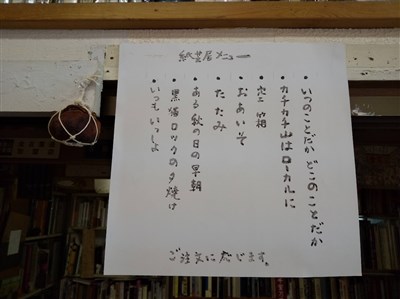 紙芝居メニュー
・いつのことだか どこのことだか
・カチカチ山はローカルに
・空箱
・おあいそ
・たたみ
・ある秋の日の早朝
・黒猫ロックの夕焼け
・いつもいっしょ
ご注文に応じます。